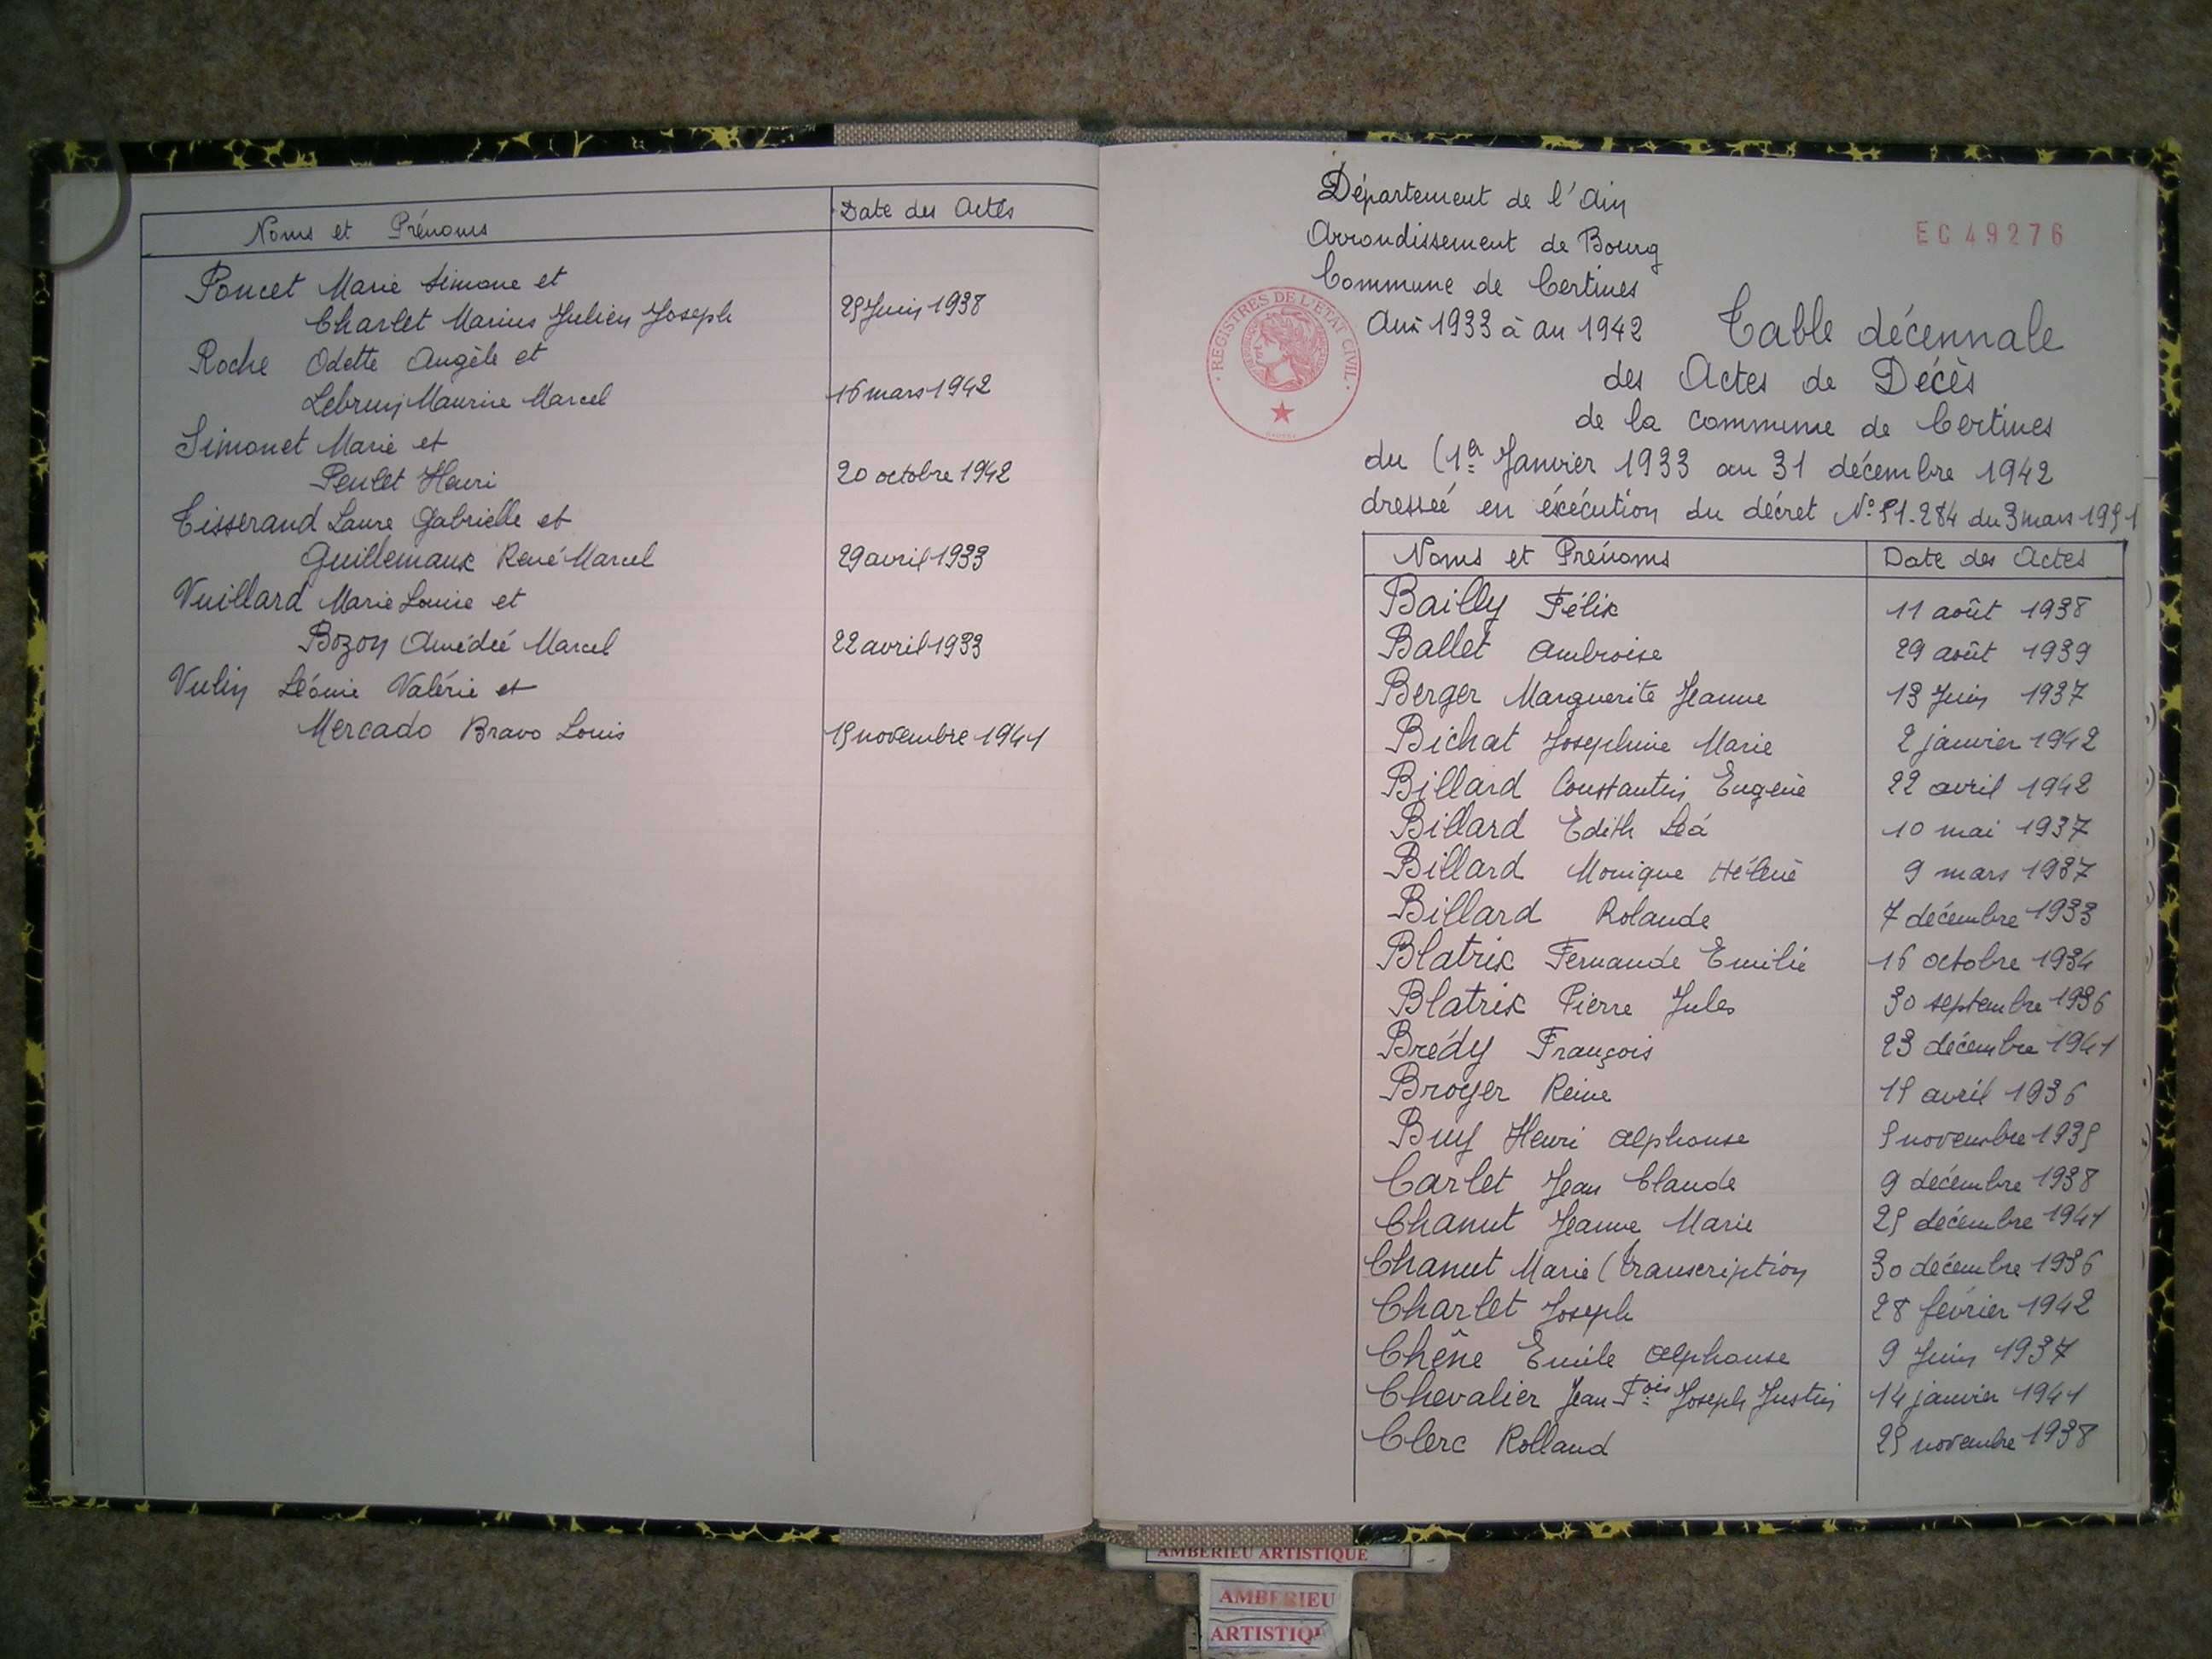 Noms et Prénoms
Date des Actes
Poncet Marie Simone et
Charlet Marius Julien Joseph
25 Juin 1938
Roche Odette Angèle et
Lebrun Maurice Marcel
16 mars 1942
Simonet Marie et
Peulet Henri
20 octobre 1942
Tisserand Laure Gabrielle et
Guillemaux René Marcel
29 avril 1933
Vuillard Marie Louise et
Bozon Amédée Marcel
22 avril 1933
Vulin Léonie Valérie et
Mercado Bravo Louis
15 novembre 1941
Département de l'Ain
Arrondissement de Bourg
Commune de Certines
An 1933 à an 1942
EC 49276
REGISTRES DE L'ETAT CIVIL
Table décennale
des Actes de Décès
de la commune de Certines
du (1er Janvier 1933 au 31 décembre 1942
dressée en éxécution du décret N° 51.284 du 3 mars 1951
Noms et Prénoms
Date des Actes
Bailly Félix 11 août 1938
Ballet Ambroise 29 août 1939
Berger Marguerite Jeanne 13 Juin 1937
Bichat Josephine Marie 2 janvier 1942
Billard Constantin Eugène 22 avril 1942
Billard Edith Léa 10 mai 1937
Billard Monique Hélène 9 mars 1937
Billard Rolande 7 décembre 1933
Blatrix Fernande Emilie 16 octobre 1934
Blatrix Pierre Jules 30 septembre 1936
Brédy François 23 décembre 1941
Broyer Reine 15 avril 1936
Buy Henri Alphonse 5 novembre 1935
Carlet Jean Claude 9 décembre 1938
Chanut Jeanne Marie 25 décembre 1941
Chanut Marie (transcription 30 décembre 1936
Charlet Joseph 28 février 1942
Chêne Emile Alphonse 9 Juin 1937
Chevalier Jean Fois Joseph Justin 14 janvier 1941
Clerc Rolland 25 novembre 1938
AMBERIEU ARTISTIQUE
AMBERIEU
ARTISTIQU